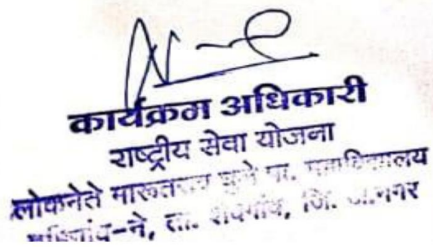 कार्यक्रम अधिकारी
राष्ट्रीय सेवा योजना
लोकनेते मारूतराव घुले पा. महाविद्यालय
ता. शेवगांव, जि. अ.नगर